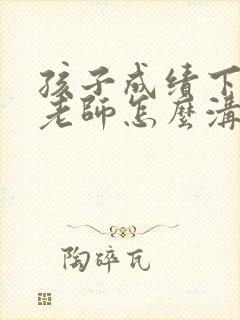 孩子成绩下
老師怎麼溝
陶碎瓦